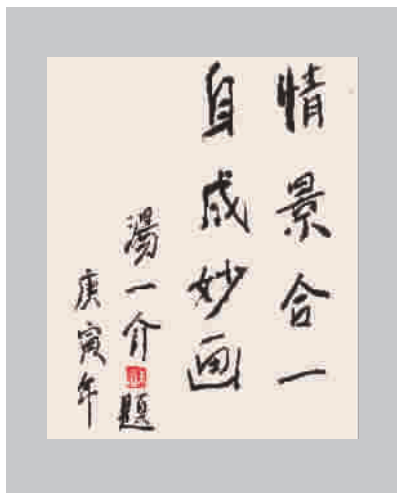 情景合一
自成妙画
湯一介題
庚寅年